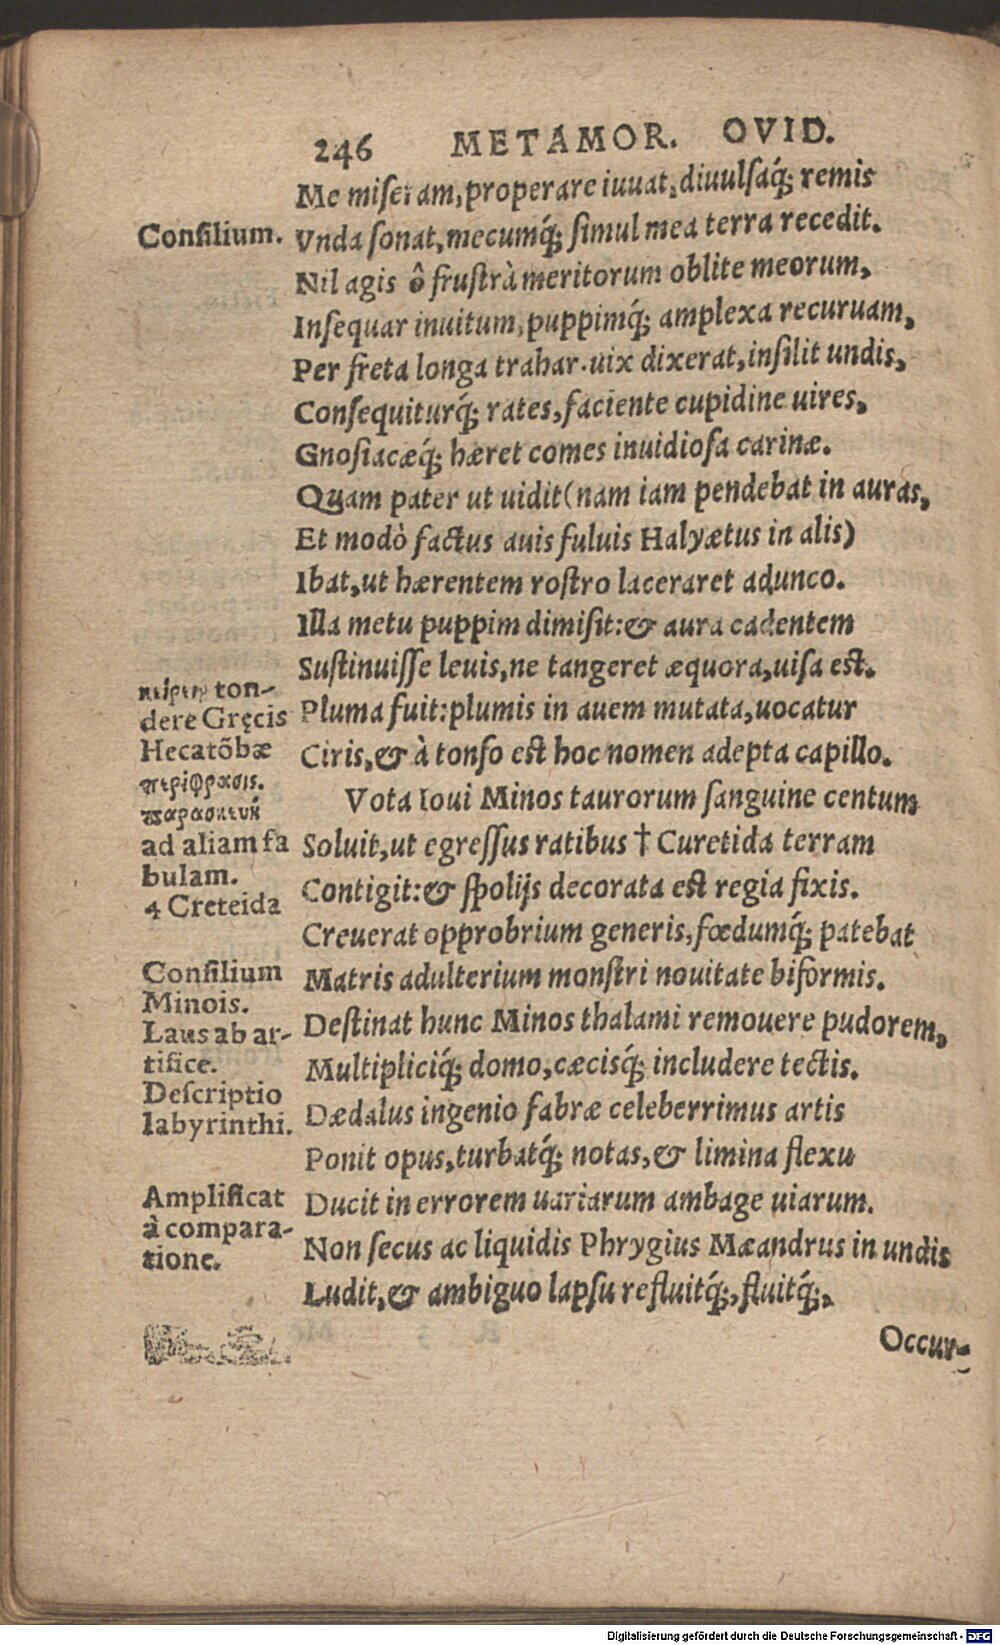 246 METAMOR. OVID.
Me miseram, properare iuuat, diuulsaq́; remis
Consilium.
Vnda sonat, mecumq́; simul mea terra recedit.
Nil agis ô frustrà meritorum oblite meorum,
Insequar inuitum, puppimq́; amplexa recuruam,
Per freta longa trahar. uix dixerat, insilit undis,
Consequiturq́; rates, faciente cupidine uires,
Gnosiacæq́; hæret comes inuidiosa carinæ.
Quam pater ut uidit (nam iam pendebat in auras,
Et modò factus auis fuluis Halyætus in alis)
Ibat, ut hærentem rostro laceraret adunco.
Illa metu puppim dimisit: & aura cadentem
Sustinuisse leuis, ne tangeret æquora, uisa est.
Pluma fuit: plumis in auem mutata, uocatur
Ciris, & à tonso est hoc nomen adepta capillo.
Vota Ioui Minos taurorum sanguine centum
Soluit, ut egressus ratibus † Curetida terram
Contigit: & spolijs decorata est regia fixis.
Creuerat opprobrium generis, fœdumq́; patebat
Matris adulterium monstri nouitate biformis.
Destinat hunc Minos thalami remouere pudorem,
Multipliciq́; domo, cæcisq́; includere tectis.
Dædalus ingenio fabræ celeberrimus artis
Ponit opus, turbatq́; notas, & limina flexu
Ducit in errorem uariarum ambage uiarum.
Non secus ac liquidis Phrygius Mæandrus in undis
Ludit, & ambiguo lapsu refluitq́;, fluitq́;,
Occur-
ton-
dere Gręcis
Hecatõbæ
περίφρασις.
ad aliam fa
bulam.
4 Creteida
Consilium
Minois.
Laus ab ar-
tifice.
Descriptio
labyrinthi.
Amplificat
à compara-
tione.
Digitalisierung gefördert durch die Deutsche Forschungsgemeinschaft - DFG